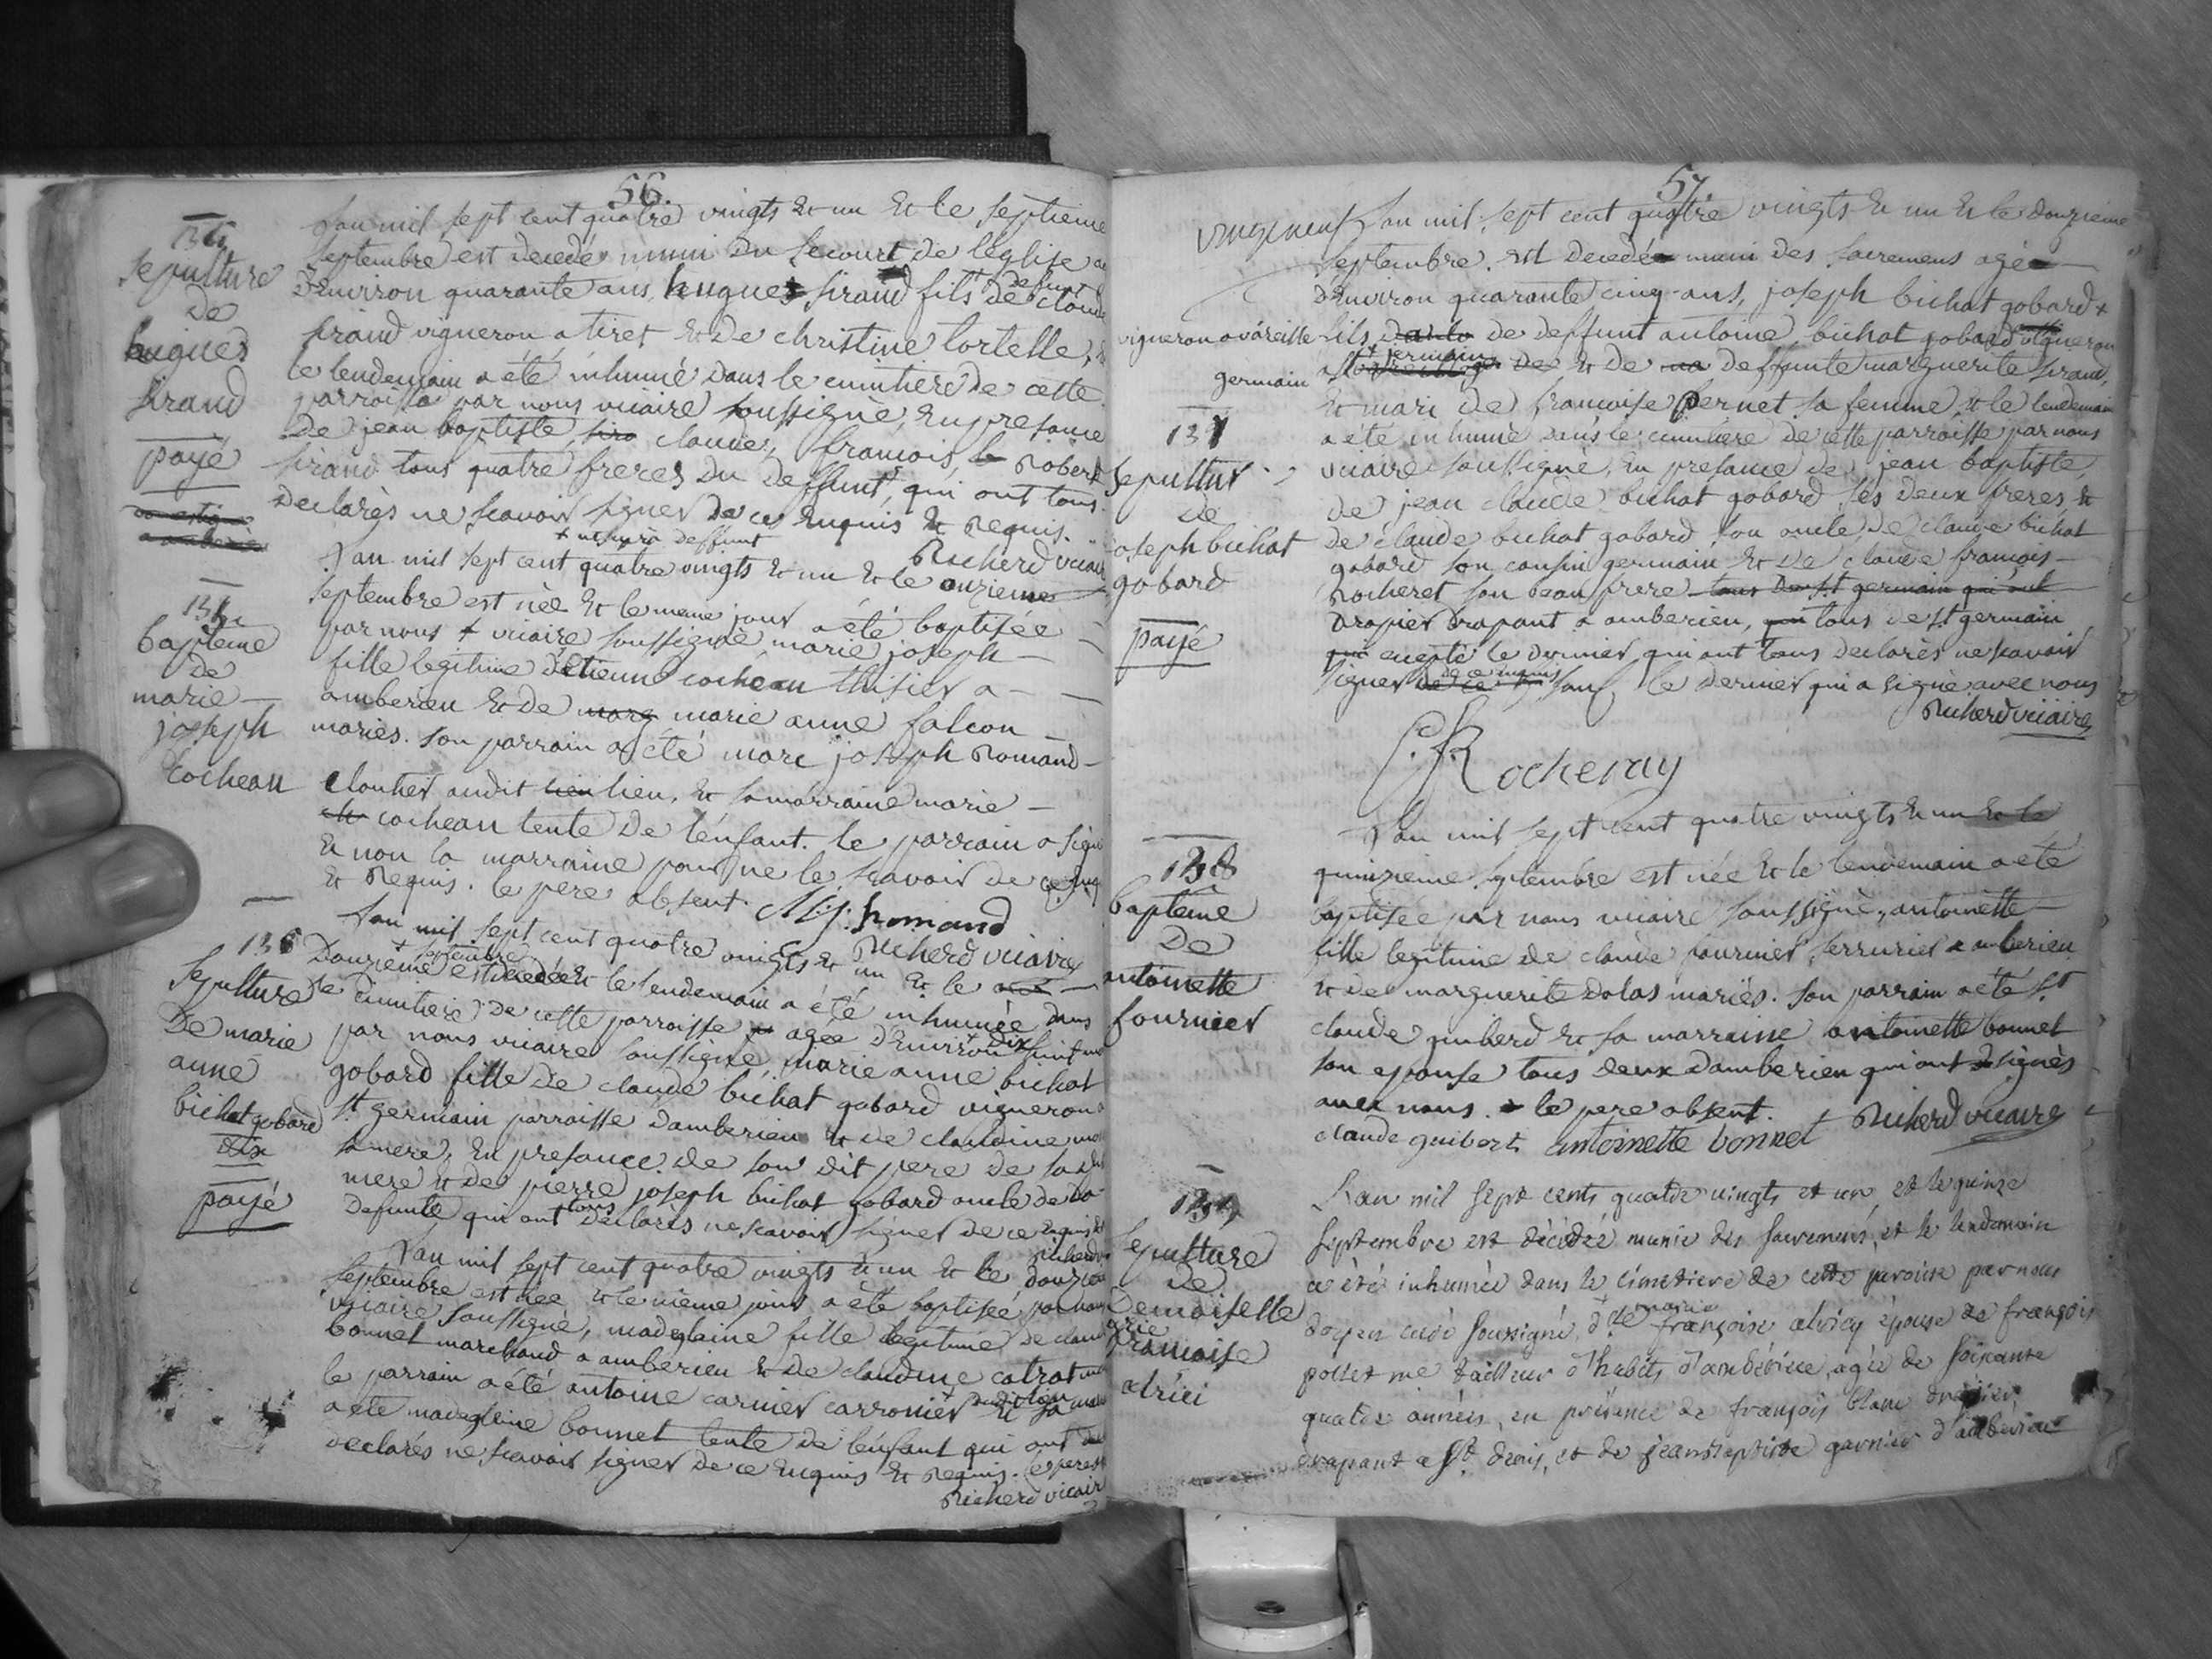 56.
L'an mil sept cent quatre vingts et un et le septieme
septembre est decedé muni du secours de l'eglise
sepulture
de
hugues
sirand
payé
D'environ quarante ans, hugues sirand fils de defunt claude
sirand vigneron a tiret et de christine tortelle,
le lendemain a été inhumé dans le cimitiere de cette
parroisse par nous vicaire soussigné, en presance
de jean baptiste, claude, francois, robert
sirand tous quatre freres du deffunt, qui ont tous
declarés ne scavoir signer de ce enquis et requis.
Richerd vicaire
L'an mil sept cent quatre vingts et un et le onzieme
septembre est née et le meme jour a été baptisée
bapteme
de
marie
joseph
cocheau
par nous + vicaire soussigné, marie joseph
fille legitime d'etienne cocheau thisier a
amberieu et de marie anne falcon
mariés. son parrain a été marc joseph Romand
cloutier audit lieu, et sa marraine marie
cocheau tente de l'enfant. le parrain a signé
et non la marraine pour ne le scavoir de ce enq
et requis. le pere absent. M. j. homand
Richerd vicaire
136
sepulture
De marie
anne
bichat gobard
dix
payé
L'an mil sept cent quatre vingts et un et le
Douzieme + septembre est decedée et le lendemain a été inhumée dans
le cimitiere de cette parroisse agée d'environ dix huit
par nous vicaire soussigné, marie anne bichat
gobard fille de claude bichat gobard vigneron a
st germain parroisse d'amberieu et de claudine
sa mere, en presance de son dit pere de sa
mere et de pierre joseph bichat gobard oncle de la
defunte qui ont tous declarés ne scavoir signer de ce enquis et
Richerd
L'an mil sept cent quatre vingts et un et le douzieme
septembre est née et le même jour a été baptisée par nous
vicaire soussigné, madeglaine fille legitime de claude
bonnet marchand a amberieu et de claudine catrat
le parrain a été antoine carnier carronier + dudit lieu et sa
a été madeglaine bonnet tente de l'enfant qui ont
declarés ne scavoir signer de ce enquis et requis. le pere
Richerd vicaire
57.
L'an mil sept cent quatre vingts et un et le douzieme
septembre est decedé muni des sacremens agé
D'environ quarante cinq ans, joseph bichat gobard +
vigneron a vareille
fils de deffunt antoine bichat gobard
germain
et de deffunte marguerite sirand,
et mari de francoise pernet sa femme, et le lendemain
137
sepulture
de
joseph bichat
gobard
payé
a été inhumé dans le cimitiere de cette parroisse par nous
vicaire soussigné, en presance de jean baptiste,
de jean claude bichat gobard ses deux freres, et
de claude bichat gobard son oncle, de claude bichat
gobard son cousin germain et de claude francois
Rocheret son beau frere tous de st germain qui ont
drapier drapant a amberieu, tous de st germain
excepté le dernier, qui ont tous declarés ne scavoir
signer de ce enquis sauf le dernier qui a signé avec nous
Richerd vicaire
C. f. Rocheray
138
bapteme
De
antoinette
fournier
L'an mil sept cent quatre vingts et un et le
quinzieme septembre est née et le lendemain a été
baptisée par nous vicaire soussigné, antoinette
fille legitime de claude fournier serrurier a amberieu
et de marguerite dolas mariés. son parrain a été st
claude guiberd et sa marraine antoinette bonnet
son epouse tous deux d'amberieu qui ont signés
avec nous. le pere absent. Richerd vicaire
claude guibert antoinette bonnet
139
sepulture
de
Demoiselle
francoise
alrici
L'an mil sept cents quatre vingts et un et le quinze
septembre est décédée munie des sacremens, et le lendemain
a été inhumée dans le cimetiere de cette paroisse par nous
doyen curé soussigné, dlle + marie françoise alricy épouse de françois
pollet me tailleur d'habits d'ambérieu, agée de soixante
quatre années, en présence de françois blanc drapier
drapant a st denis, et de jeanbaptiste garnier d'ambérieu